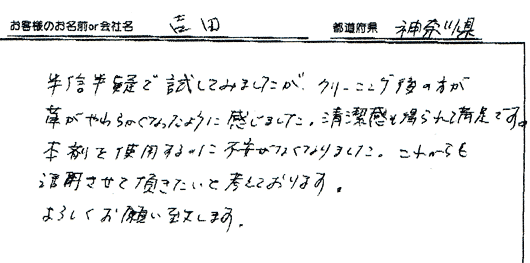 お客様のお名前or会社名 吉田 都道府県 神奈川県
半信半疑で試してみましたが、クリーニング後の方が
革がやわらかくなったように感じました。清潔感も得られて満足です。
本剤を使用するのに不安がなくなりました。これからも
活用させて頂きたいと考えております。
よろしくお願い致します。